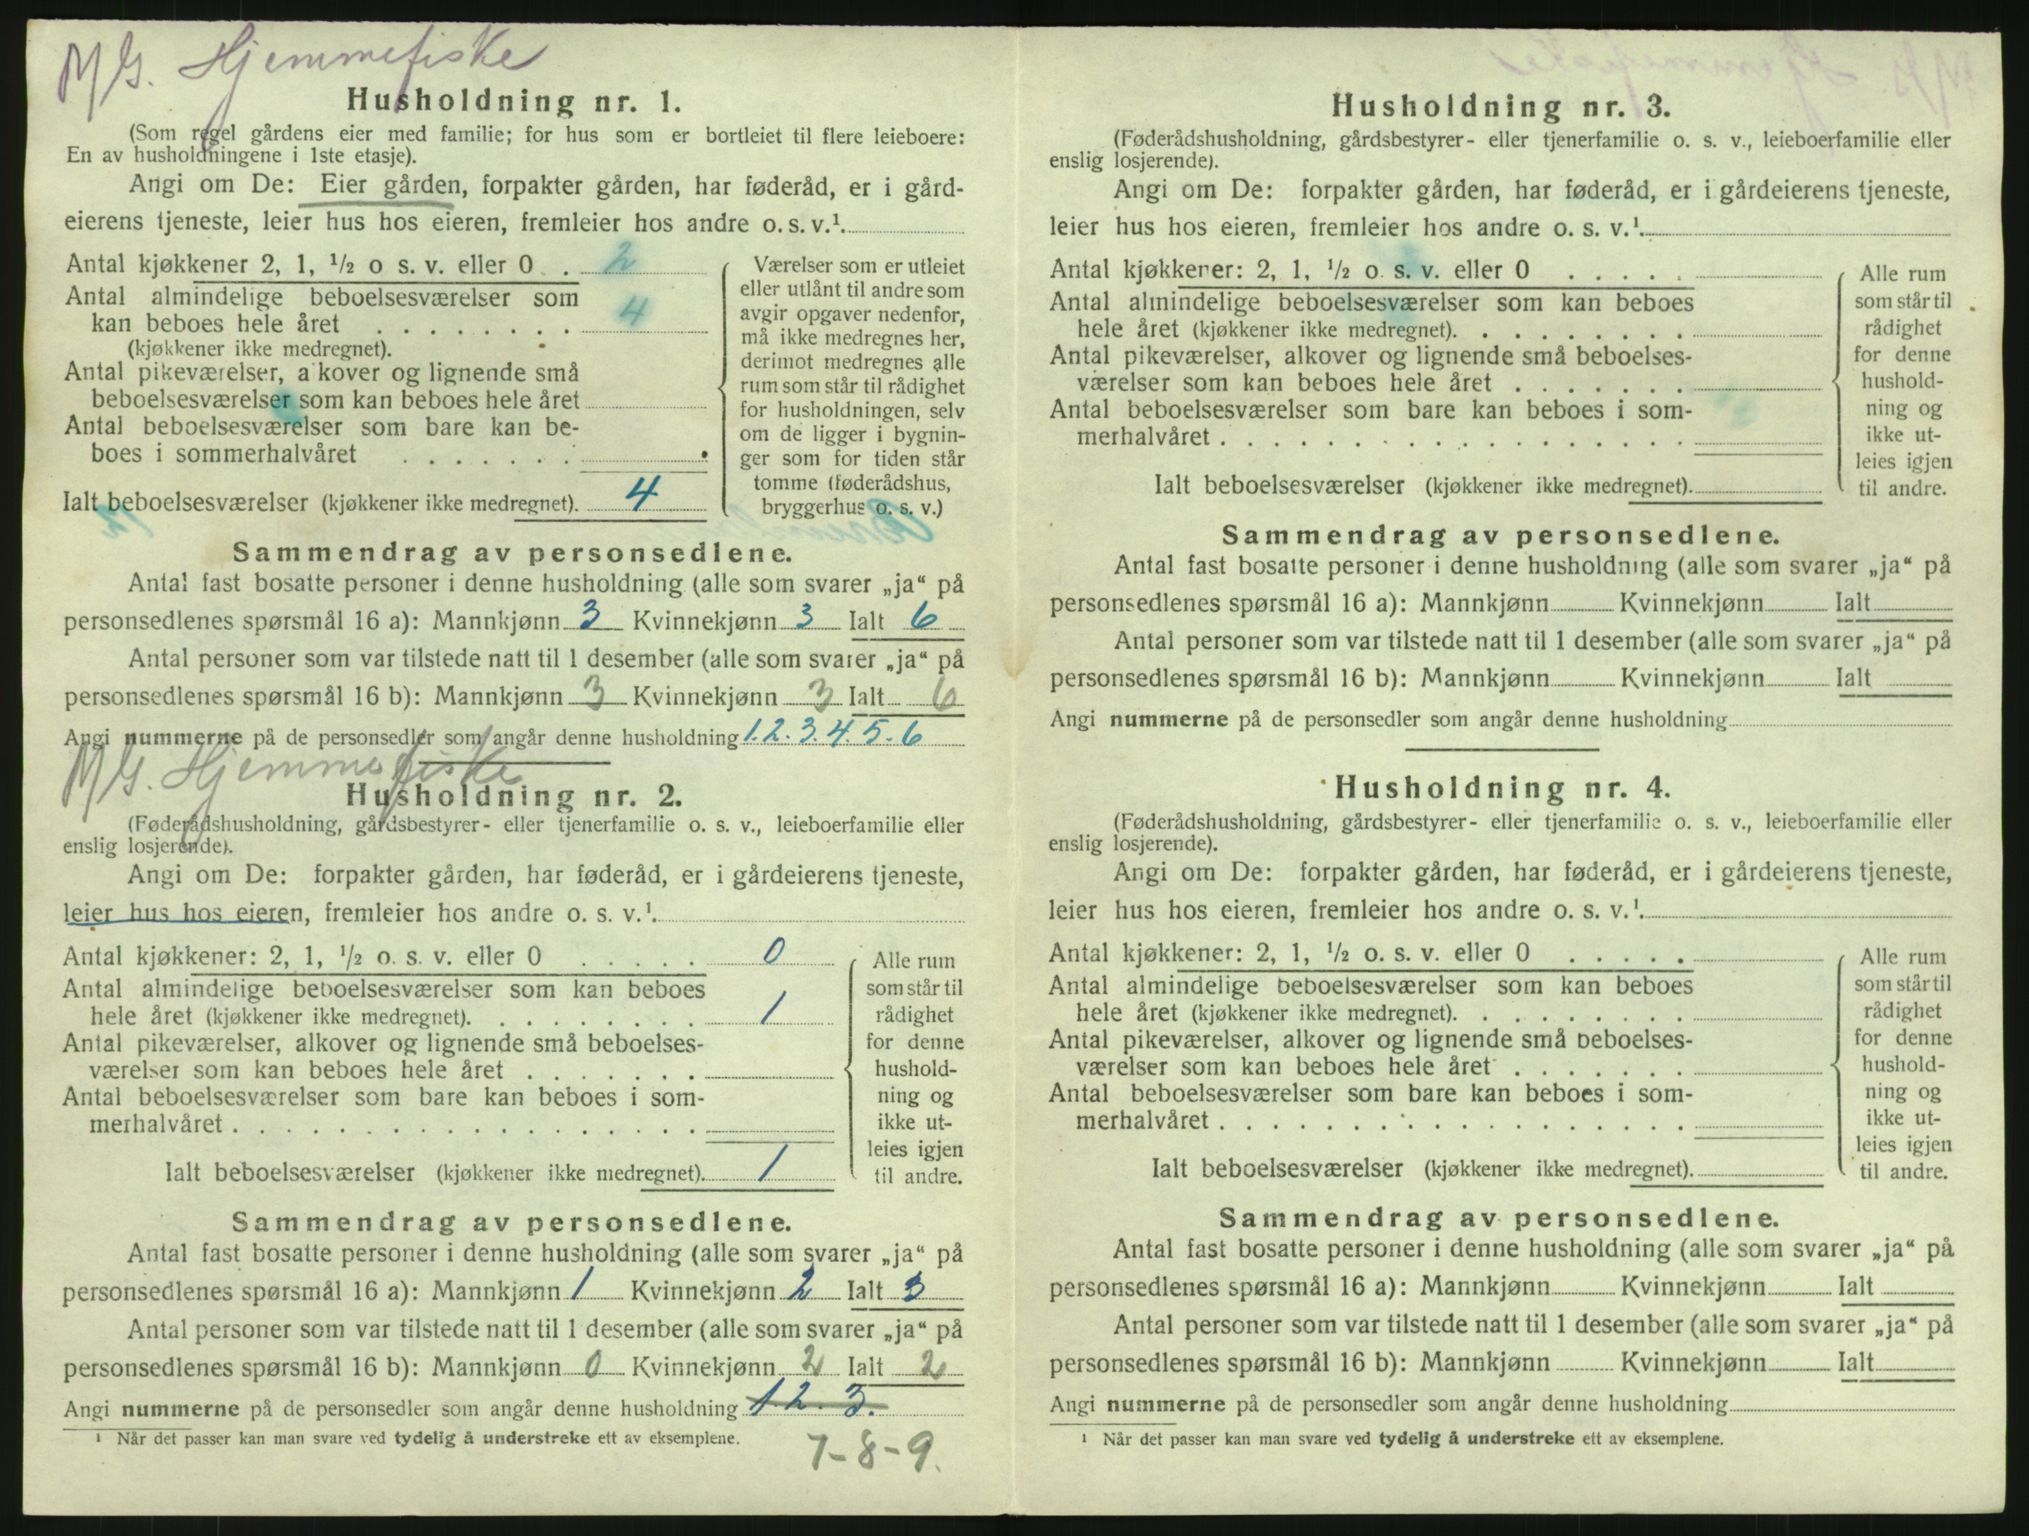 M/G. Hjemmefiske
Husholdning nr. 1.
(Som regel gårdens eier med familie; for hus som er bortleiet til flere leieboere:
En av husholdningene i 1ste etasje).
Angi om De: Eier gården, forpakter gården, har føderåd, er i gård-
eierens tjeneste, leier hus hos eieren, fremleier hos andre o. s. v.¹.
Antal kjøkkener 2, 1, ½ o s. v. eller 0 . 2
Antal almindelige beboelsesværelser som
kan beboes hele året . . . . . . . . 4
(kjøkkener ikke medregnet).
Antal pikeværelser, a kover og lignende små
beboelsesværelser som kan beboes hele året
Antal beboelsesværelser som bare kan be-
boes i sommerhalvåret . . . . . . .
Ialt beboelsesværelser (kjøkkener ikke medregnet). 4
Værelser som er utleiet
eller utlånt til andre som
avgir opgaver nedenfor,
må ikke medregnes her,
derimot medregnes alle
rum som står til rådighet
for husholdningen, selv
om de ligger i bygnin-
ger som for tiden står
tomme (føderådshus,
bryggerhus o. s. v.)
Sammendrag av personsedlene.
Antal fast bosatte personer i denne husholdning (alle som svarer „ja“ på
personsedlenes spørsmål 16 a): Mannkjønn 3 Kvinnekjønn 3 Ialt 6
Antal personer som var tilstede natt til 1 desember (alle som svarer „ja“ på
personsedlenes spørsmål 16 b): Mannkjønn 3 Kvinnekjønn 3 Ialt 6
Angi nummerne på de personsedler som angår denne husholdning 1.2.3.4.5-6
M/G. Hjemmefiske
Husholdning nr. 2.
(Føderådshusholdning, gårdsbestyrer- eller tjenerfamilie o. s. v., leieboerfamilie eller
enslig losjerende).
Angi om De: forpakter gården, har føderåd, er i gårdeierens tjeneste,
leier hus hos eieren, fremleier hos andre o. s. v.¹.
Antal kjøkkener: 2, 1, ½ o. s. v. eller 0 . . . . . 0
Antal almindelige beboelsesværelser som kan beboes
hele året (kjøkkener ikke medregnet). . . . . . . . . 1
Antal pikeværelser, alkover og lignende små beboelses-
værelser som kan beboes hele året . . . . . . .
Antal beboelsesværelser som bare kan beboes i som-
merhalvåret . . . . . . . . . . . . . . . . . .
Ialt beboelsesværelser (kjøkkener ikke medregnet). 1
Alle rum
som står til
rådighet
for denne
hushold-
ning og
ikke ut-
leies igjen
til andre.
Sammendrag av personsedlene.
Antal fast bosatte personer i denne husholdning (alle som svarer „ja“ på
personsedlenes spørsmål 16 a): Mannkjønn 1 Kvinnekjønn 2 Ialt 3
Antal personer som var tilstede natt til 1 desember (alle som svarer „ja“ på
personsedlenes spørsmål 16 b): Mannkjønn 0 Kvinnekjønn 2 Ialt 2
Angi nummerne på de personsedler som angår denne husholdning 1.2.3.
¹ Når det passer kan man svare ved tydelig å understreke ett av eksemplene.
7-8-9.
Husholdning nr. 3.
(Føderådshusholdning, gårdsbestyrer- eller tjenerfamilie o. s. v., leieboerfamilie eller
enslig losjerende).
Angi om De: forpakter gården, har føderåd, er i gårdeierens tjeneste,
leier hus hos eieren, fremleier hos andre o. s. v.¹.
Antal kjøkkener: 2, 1, ½ o. s. v. eller 0 . . . . .
Antal almindelige beboelsesværelser som kan beboes
hele året (kjøkkener ikke medregnet). . . . . . . . .
Antal pikeværelser, alkover og lignende små beboelses-
værelser som kan beboes hele året . . . . . . .
Antal beboelsesværelser som bare kan beboes i som-
merhalvåret . . . . . . . . . . . . . . . . . .
Ialt beboelsesværelser (kjøkkener ikke medregnet).
Alle rum
som står til
rådighet
for denne
hushold-
ning og
ikke ut-
leies igjen
til andre.
Sammendrag av personsedlene.
Antal fast bosatte personer i denne husholdning (alle som svarer „ja“ på
personsedlenes spørsmål 16 a): Mannkjønn Kvinnekjønn Ialt
Antal personer som var tilstede natt til 1 desember (alle som svarer „ja“ på
personsedlenes spørsmål 16 b): Mannkjønn Kvinnekjønn Ialt
Angi nummerne på de personsedler som angår denne husholdning
Husholdning nr. 4.
(Føderådshusholdning, gårdsbestyrer- eller tjenerfamilie o. s. v., leieboerfamilie eller
enslig losjerende).
Angi om De: forpakter gården, har føderåd, er i gårdeierens tjeneste,
leier hus hos eieren, fremleier hos andre o. s. v.¹.
Antal kjøkkener: 2, 1, ½ o. s. v. eller 0 . . . . .
Antal almindelige beboelsesværelser som kan beboes
hele året (kjøkkener ikke medregnet). . . . . . . . .
Antal pikeværelser, alkover og lignende små beboelses-
værelser som kan beboes hele året . . . . . . .
Antal beboelsesværelser som bare kan beboes i som-
merhalvåret . . . . . . . . . . . . . . . . . .
Ialt beboelsesværelser (kjøkkener ikke medregnet).
Alle rum
som står til
rådighet
for denne
hushold-
ning og
ikke ut-
leies igjen
til andre.
Sammendrag av personsedlene.
Antal fast bosatte personer i denne husholdning (alle som svarer „ja“ på
personsedlenes spørsmål 16 a): Mannkjønn Kvinnekjønn Ialt
Antal personer som var tilstede natt til 1 desember (alle som svarer „ja“ på
personsedlenes spørsmål 16 b): Mannkjønn Kvinnekjønn Ialt
Angi nummerne på de personsedler som angår denne husholdning
¹ Når det passer kan man svare ved tydelig å understreke ett av eksemplene.